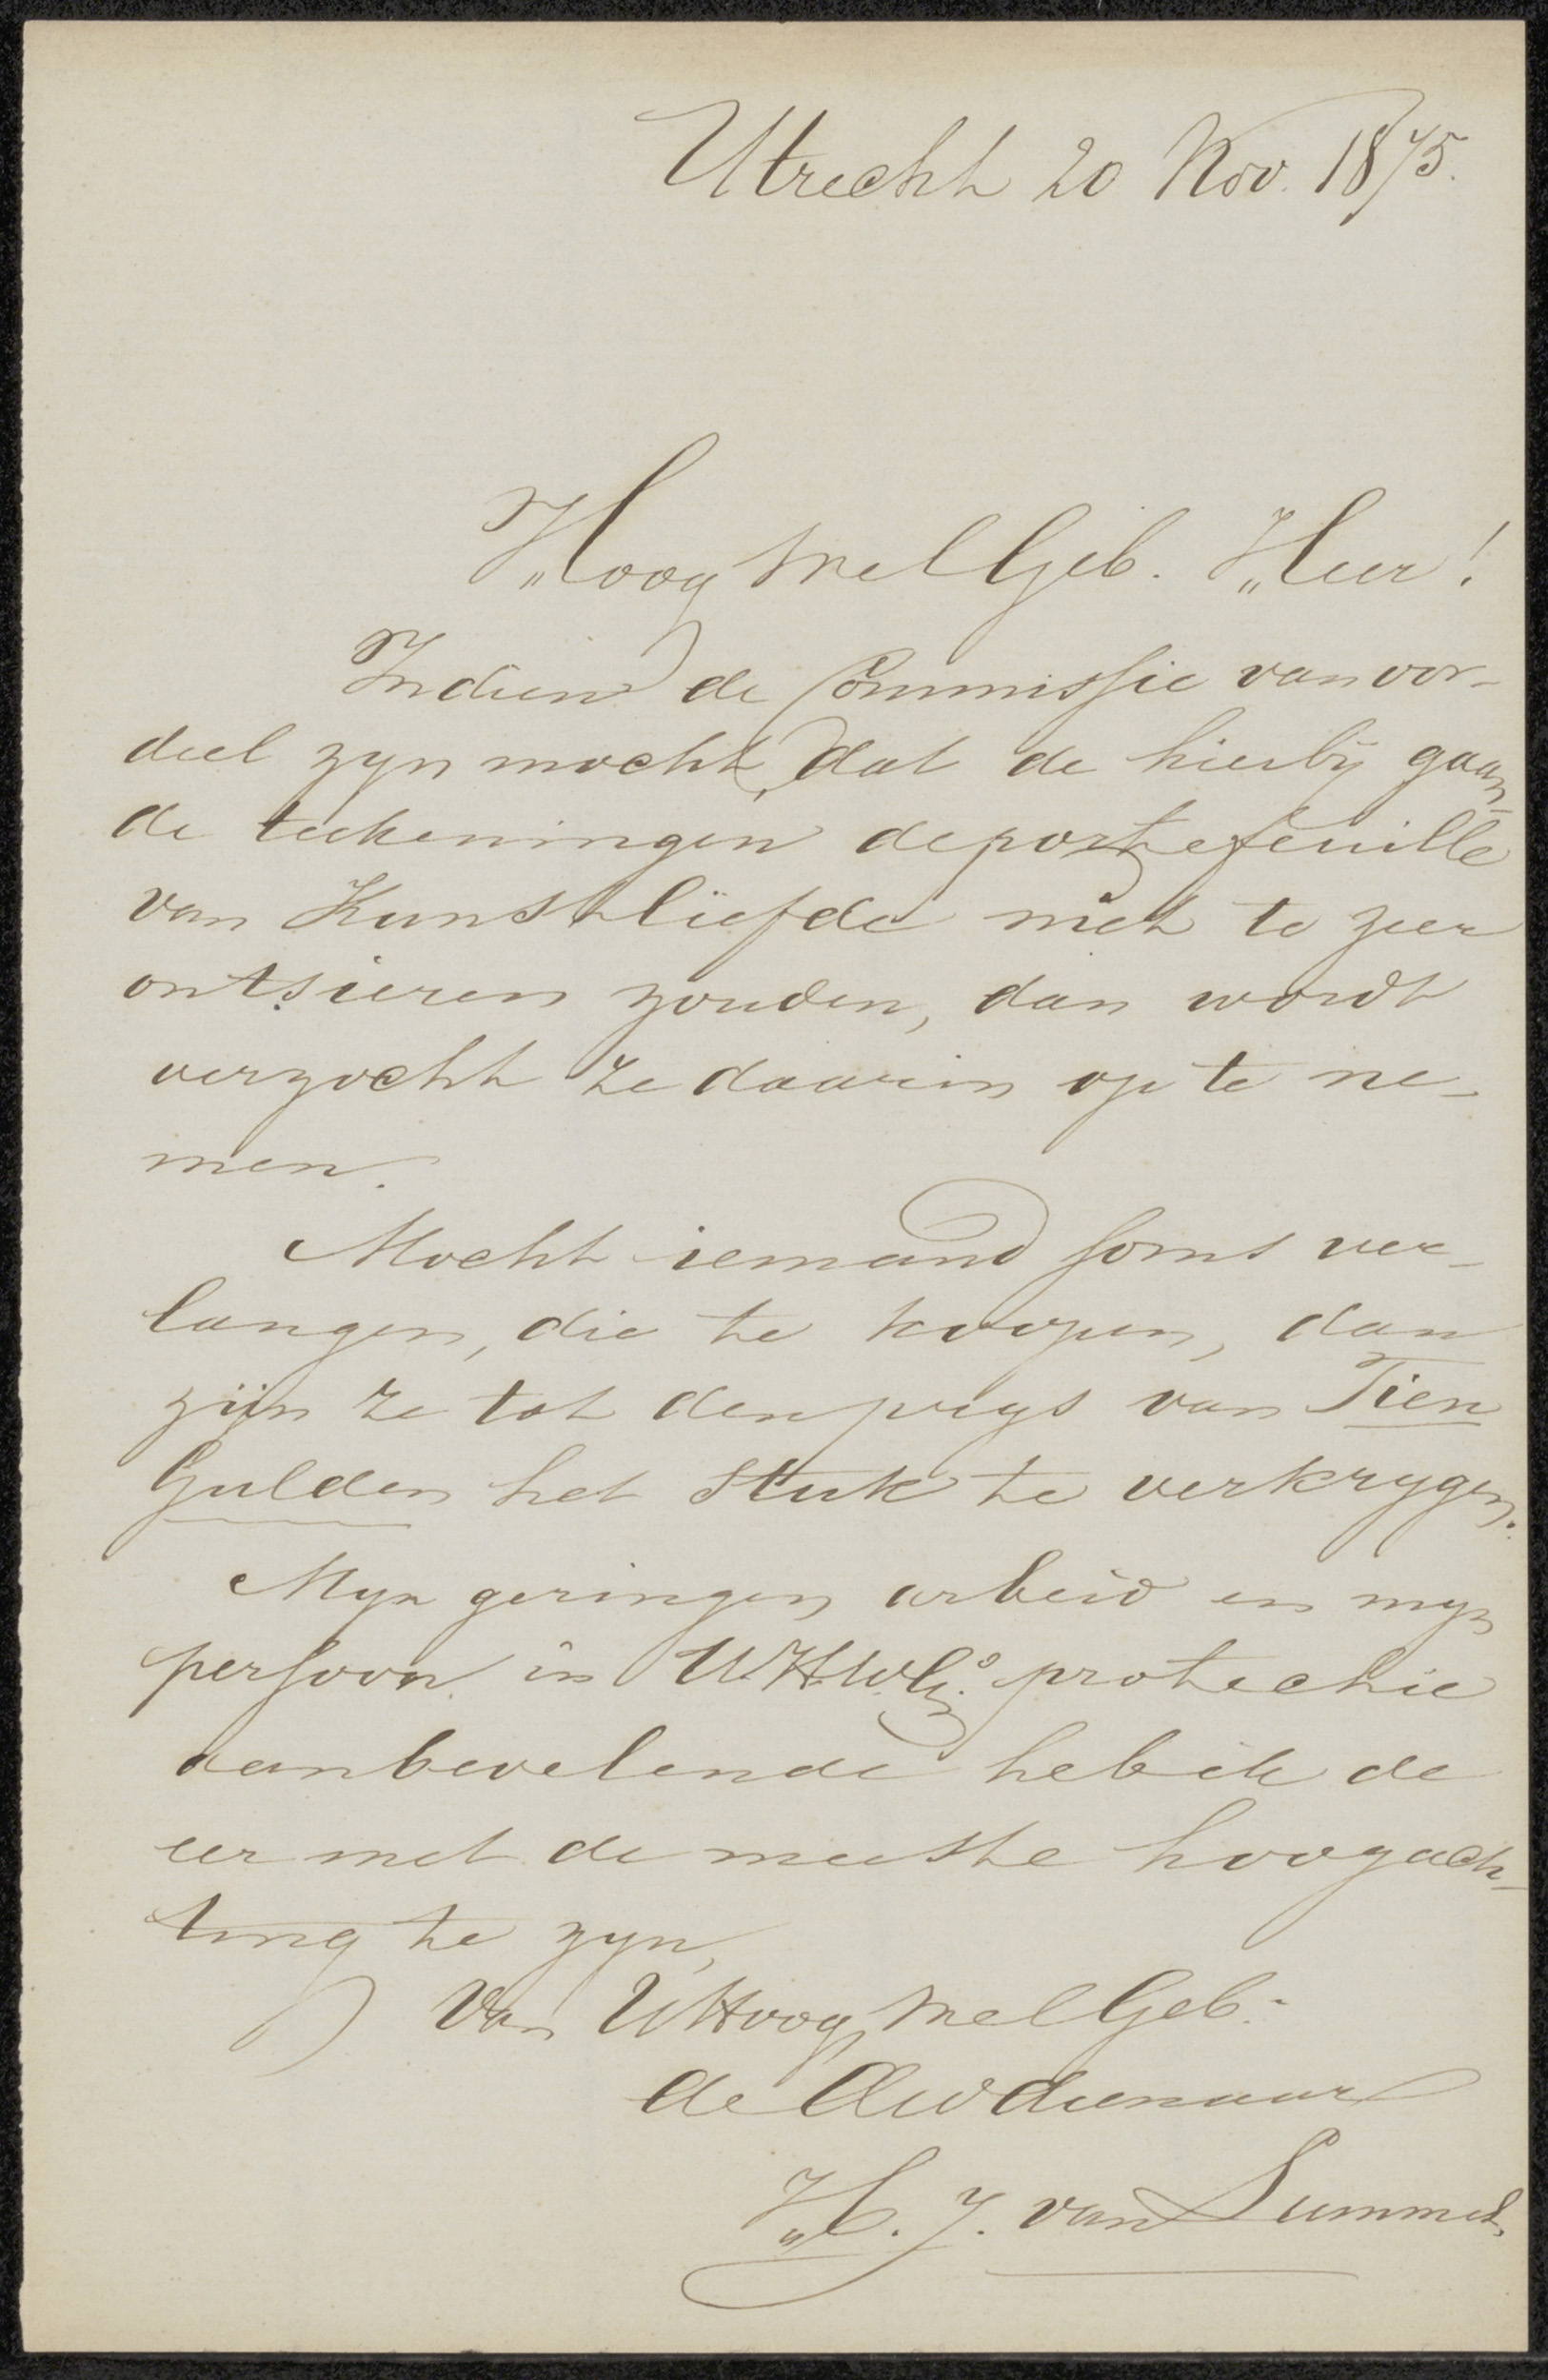 Utrecht 20 Nov. 1875.
Hoog Wel Geb. Heer!
Indien de Commissie van oor-
deel zyn mocht, dat de hierbij gaan-
de teekeningen de portefeuille
van Kunstliefde niet te zeer
ontsieren zouden, dan wordt
verzocht ze daarin op te ne-
men.
Mocht iemand soms ver-
langen, die te koopen, dan
zijn ze tot den prys van Tien
Gulden het stuk te verkrygen.
Myn geringen arbeid en myn
persoon in U.H.W.G. protectie
aanbevelende heb ik de
eer met de meeste hoogach-
ting te zyn,
Van UHoog Wel Geb.
de dw dienaar
H. J. van Lummel